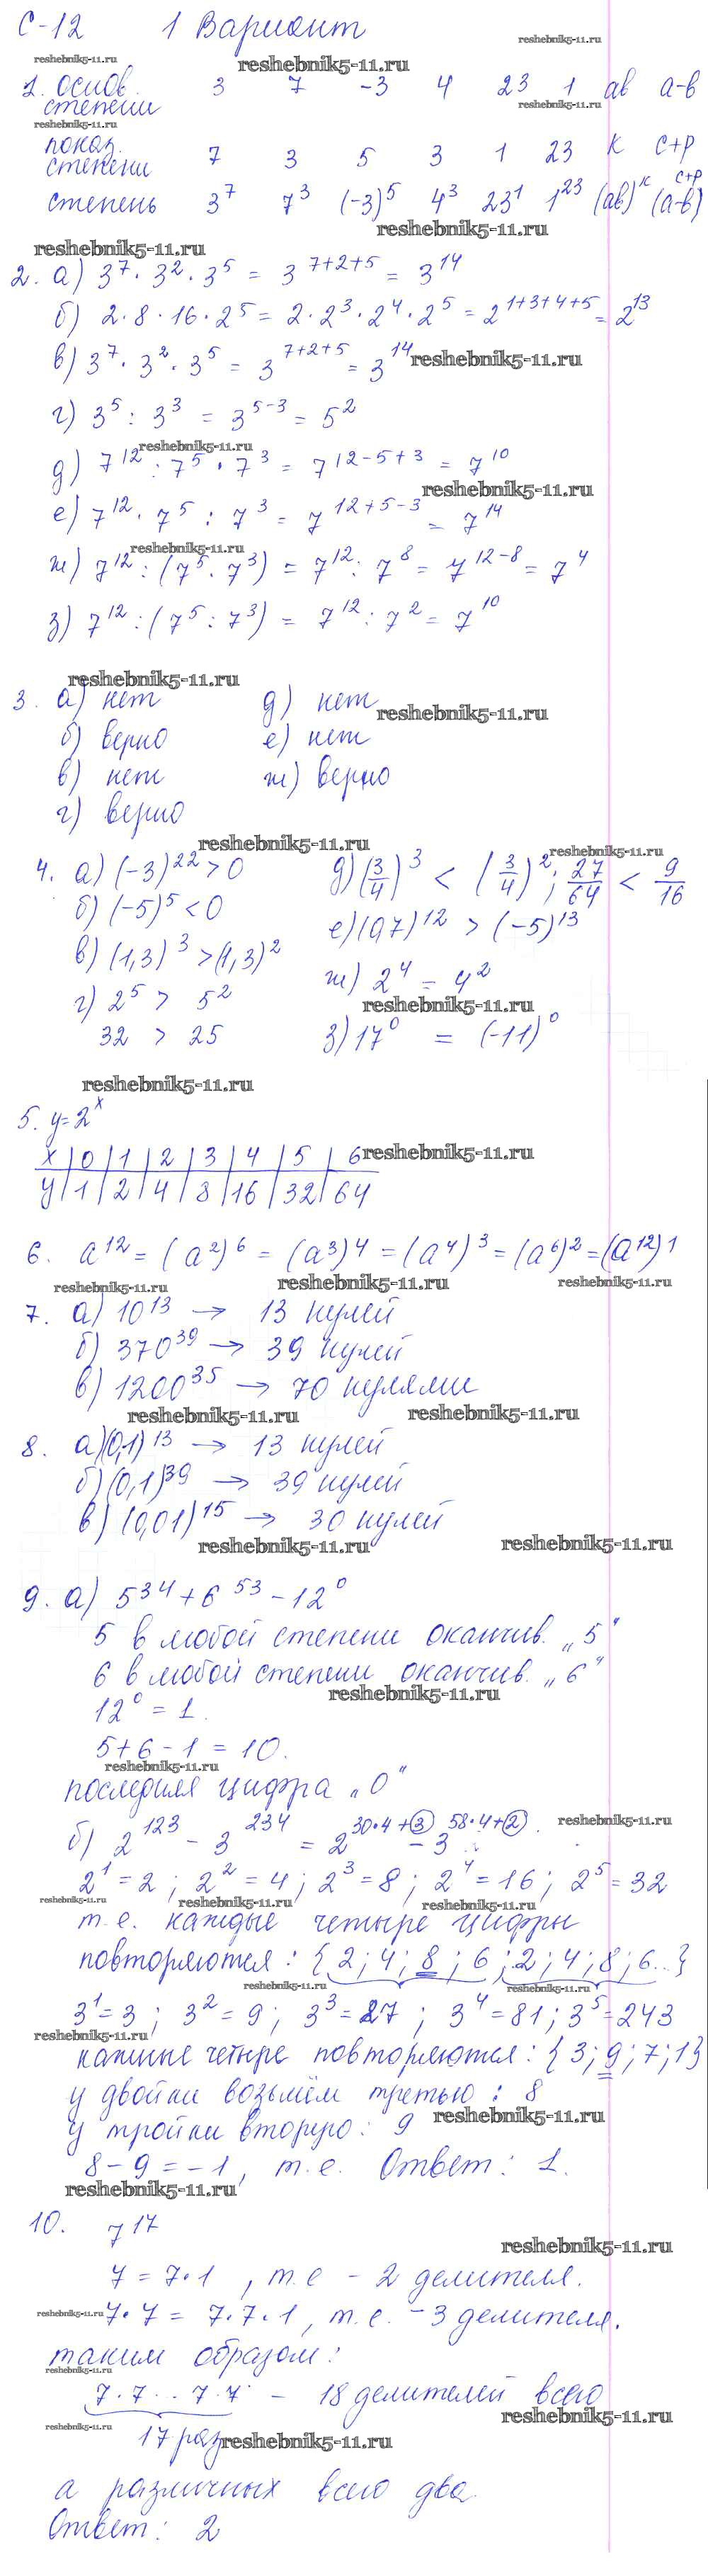 С-12 1 Вариант
reshebnik5-11.ru reshebnik5-11.ru reshebnik5-11.ru
1. основ. 3 7 -3 4 23 1 ab a-b
степени reshebnik5-11.ru
reshebnik5-11.ru
показ. 7 3 5 3 1 23 k c+p
степени
степень 3^7 7^3 (-3)^5 4^3 23^1 1^23 (ab)^k (a-b)^c+p
reshebnik5-11.ru
reshebnik5-11.ru
2. а) 3^7 · 3^2 · 3^5 = 3^7+2+5 = 3^14
б) 2 · 8 · 16 · 2^5 = 2 · 2^3 · 2^4 · 2^5 = 2^1+3+4+5 = 2^13
в) 3^7 · 3^2 · 3^5 = 3^7+2+5 = 3^14 reshebnik5-11.ru
г) 3^5 : 3^3 = 3^5-3 = 5^2
reshebnik5-11.ru
д) 7^12 : 7^5 · 7^3 = 7^12-5+3 = 7^10
reshebnik5-11.ru
е) 7^12 · 7^5 : 7^3 = 7^12+5-3 = 7^14
reshebnik5-11.ru
ж) 7^12 : (7^5 · 7^3) = 7^12 : 7^8 = 7^12-8 = 7^4
з) 7^12 : (7^5 : 7^3) = 7^12 : 7^2 = 7^10
reshebnik5-11.ru
3. а) нет д) нет
reshebnik5-11.ru
б) верно е) нет
в) нет ж) верно
г) верно
reshebnik5-11.ru reshebnik5-11.ru
4. а) (-3)^22 > 0 д) (3/4)^3 < (3/4)^2; 27/64 < 9/16
б) (-5)^5 < 0 е) (0,7)^12 > (-5)^13
в) (1,3)^3 > (1,3)^2 ж) 2^4 = 4^2
г) 2^5 > 5^2 reshebnik5-11.ru
32 > 25 з) 17^0 = (-11)^0
reshebnik5-11.ru
5. y=2^x
x 0 1 2 3 4 5 6 reshebnik5-11.ru
y 1 2 4 8 16 32 64
6. a^12 = (a^2)^6 = (a^3)^4 = (a^4)^3 = (a^6)^2 = (a^12)^1
reshebnik5-11.ru reshebnik5-11.ru reshebnik5-11.ru
7. а) 10^13 → 13 нулей
б) 370^39 → 39 нулей
в) 1200^35 → 70 нулями
reshebnik5-11.ru reshebnik5-11.ru
8. а) (0,1)^13 → 13 нулей
б) (0,1)^39 → 39 нулей
в) (0,01)^15 → 30 нулей
reshebnik5-11.ru reshebnik5-11.ru
9. а) 5^34 + 6^53 - 12^0
5 в любой степени оканчив. „5"
6 в любой степени оканчив. „6"
reshebnik5-11.ru
12^0 = 1.
5+6-1 = 10.
reshebnik5-11.ru
последняя цифра „0"
б) 2^123 - 3^234 = 2^30·4+3 - 3^58·4+2. reshebnik5-11.ru
2^1=2; 2^2=4; 2^3=8; 2^4=16; 2^5=32
reshebnik5-11.ru reshebnik5-11.ru reshebnik5-11.ru
т.е. каждые четыре цифры
повторяются: {2; 4; 8; 6; 2; 4; 8; 6...}
reshebnik5-11.ru reshebnik5-11.ru
3^1=3; 3^2=9; 3^3=27; 3^4=81; 3^5=243
reshebnik5-11.ru
каждые четыре повторяются: {3; 9; 7; 1}
у двойки возьмём третью: 8
у тройки вторую: 9 reshebnik5-11.ru
8-9=-1, т.е. Ответ: 1.
reshebnik5-11.ru
10. 7^17
reshebnik5-11.ru
7 = 7·1, т.е - 2 делителя.
reshebnik5-11.ru 7·7 = 7·7·1, т.е. - 3 делителя.
таким образом:
reshebnik5-11.ru
7·7...7·7 - 18 делителей всего
reshebnik5-11.ru reshebnik5-11.ru
17 раз reshebnik5-11.ru
а различных всего два.
Ответ: 2